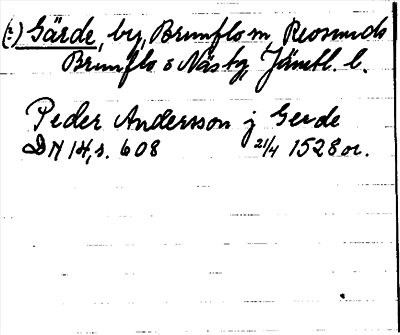 (?) Gärde, by, Brunflo sn, Revsunds
Brunflo o Näs tg, Jämtl. l.
Peder Andersson j Gerde
DN 14, s. 608 21/4 1528 or.